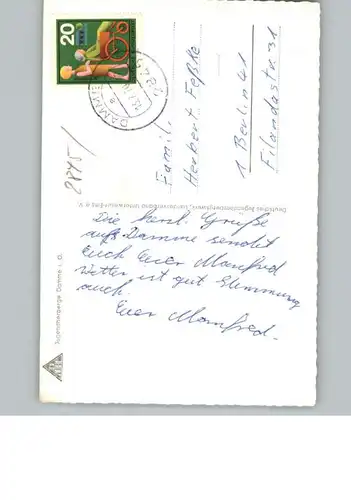 20
DAMME
2845/
Famil.
Herbert Feßke
1 Berlin 41
Filandastr. 31
Deutsches Jugendherbergswerk, Landesverband Unterweser-Ems e. V.
Die herzl. Grüße
aus Damme sendet
Euch Euer Manfred
Wetter ist gut Stimmung
auch.
Euer Manfred.
Jugendherberge Damme i. O.